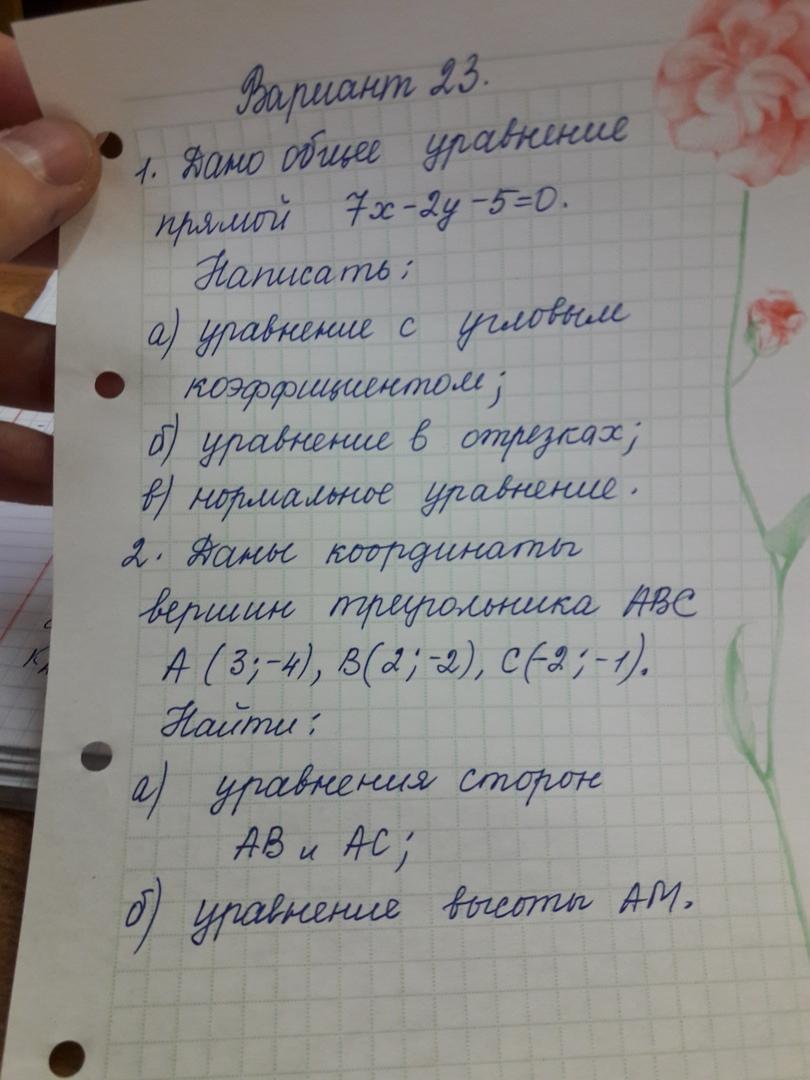 Вариант 23.
1. Дано общее уравнение
прямой 7x-2y-5=0.
Написать:
а) уравнение с угловым
коэффициентом;
б) уравнение в отрезках;
в) нормальное уравнение.
2. Даны координаты
вершин треугольника ABC
A (3;-4), B(2;-2), C(-2;-1).
Найти:
а) уравнения сторон
AB и AC;
б) уравнение высоты AM.